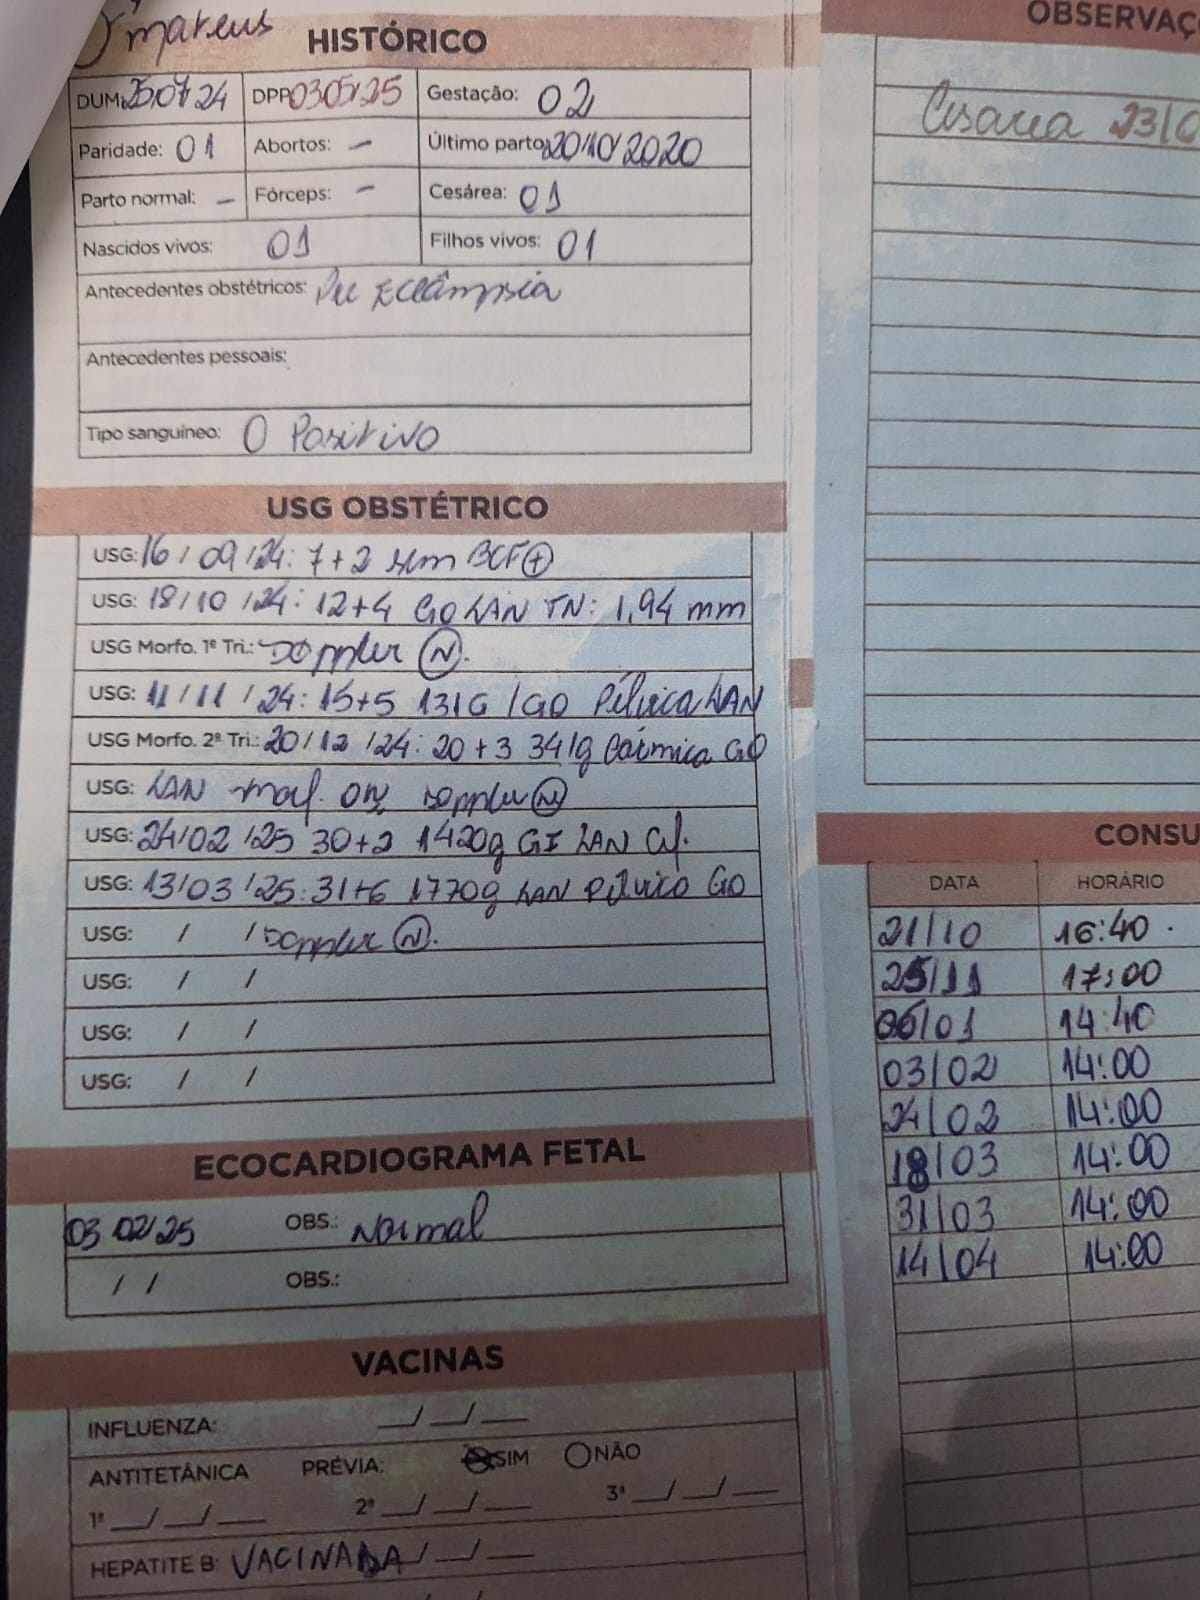 mateus
HISTÓRICO
DUM: 25/07/24 DPP 03/05/25 Gestação: 02
Paridade: 01 Abortos: — Último parto: 20/10/2020
Parto normal: — Fórceps: — Cesárea: 01
Nascidos vivos: 01 Filhos vivos: 01
Antecedentes obstétricos: Pré Eclâmpsia
Antecedentes pessoais:
Tipo sanguíneo: O Positivo
USG OBSTÉTRICO
USG: 16/09/24: 7+2 sem BCF ⊕
USG: 18/10/24: 12+4 GO LAN TN: 1,94 mm
USG Morfo. 1º Tri.: Doppler Ⓝ.
USG: 11/11/24: 15+5 131G/GO Pélvica LAN
USG Morfo. 2º Tri.: 20/12/24: 20+3 341g Córmica GO
USG: LAN morf. Doppler Ⓝ
USG: 24/02/25 30+2 1420g GI LAN Cef.
USG: 13/03/25: 31+6 1770g LAN Pélvico GO
USG: / / Doppler Ⓝ.
USG: / /
USG: / /
USG: / /
ECOCARDIOGRAMA FETAL
03/02/25 OBS.: Normal
/ / OBS.:
VACINAS
INFLUENZA: __/__/__
ANTITETÂNICA PRÉVIA: SIM NÃO
1ª __/__/__ 2ª __/__/__ 3ª __/__/__
HEPATITE B: VACINADA/__/__
OBSERVAÇ
Cesarea 23/0
CONSU
DATA HORÁRIO
21/10 16:40
25/11 17:00
06/01 14:40
03/02 14:00
24/02 14:00
18/03 14:00
31/03 14:00
14/04 14:00